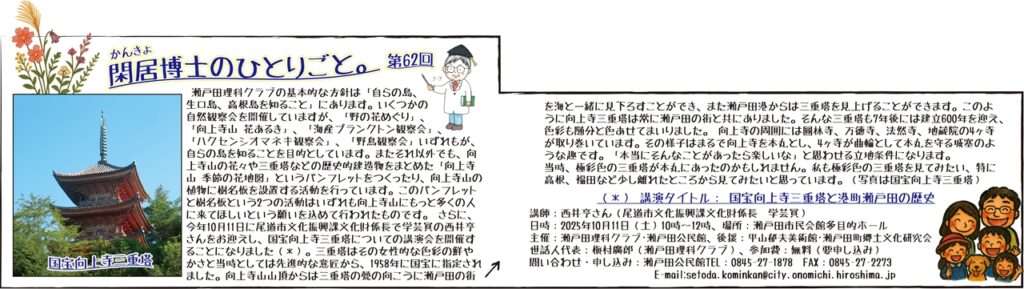 かんきょ
閑居博士のひとりごと。 第62回
瀬戸田理科クラブの基本的な方針は「自らの島、
生口島、高根島を知ること」にあります。いくつかの
自然観察会を開催していますが、「野の花めぐり」、
「向上寺山 花あるき」、「海産プランクトン観察会」、
「ハクセンシオマネキ観察会」、「野鳥観察会」いずれもが、
自らの島を知ることを目的としています。またそれ以外でも、向上
寺山の花々や三重塔などの歴史的建造物をまとめた「向上寺
山 季節の花地図」というパンフレットをつくったり、向上寺山の
植物に樹名板を設置する活動を行っています。このパンフレット
と樹名板という2つの活動はいずれも向上寺山にもっと多くの人
に来てほしいという願いを込めて行われたものです。 さらに、
今年10月11日に尾道市文化振興課文化財係長で学芸員の西井亨
さんをお迎えし、国宝向上寺三重塔についての講演会を開催する
ことになりました(*)。三重塔はその女性的な色彩の鮮や
かさと当時としては先進的な意匠から、1958年に国宝に指定され
ました。向上寺山山頂からは三重塔の甍の向こうに瀬戸田の街
国宝向上寺三重塔
を海と一緒に見下ろすことができ、また瀬戸田港からは三重塔を見上げることができます。このよ
うに向上寺三重塔は常に瀬戸田の街と共にありました。そんな三重塔も7年後には建立600年を迎え、
色彩も随分と色あせてまいりました。 向上寺の周囲には圓林寺、万徳寺、法然寺、地蔵院の4ヶ寺
が取り巻いています。その様子はまるで向上寺を本丸とし、4ヶ寺が曲輪として本丸を守る城塞のよ
うな趣です。「本当にそんなことがあったら楽しいな」と思わせる立地条件になります。
当時、極彩色の三重塔が本丸にあったのかもしれません。私も極彩色の三重塔を見てみたい、特に
高根、福田など少し離れたところから見てみたいと思っています。(写真は国宝向上寺三重塔)
(*) 講演タイトル: 国宝向上寺三重塔と港町瀬戸田の歴史
講師:西井亨さん(尾道市文化振興課文化財係長 学芸員)
日時:2025年10月11日(土)10時~12時、場所:瀬戸田市民会館多目的ホール
主催:瀬戸田理科クラブ・瀬戸田公民館、後援:平山郁夫美術館・瀬戸田町郷土文化研究会
世話人代表:植村廣郎(瀬戸田理科クラブ)、参加費:無料(要申し込み)
問い合わせ・申し込み:瀬戸田公民館TEL:0845-27-1878 FAX:0845-27-2273
E-mail:setoda.kominkan@city.onomichi.hiroshima.jp